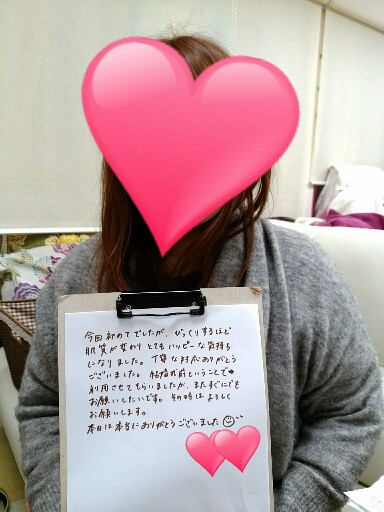 今回初めてでしたが、びっくりするほど
肌質が変わりとてもハッピーな気持ち
になりました。丁寧な対応ありがとう
ございました。結婚式前ということで
利用させてもらいましたが、またすぐにでも
お願いしたいです。その時はよろしく
お願いします。
本日は本当にありがとうございました